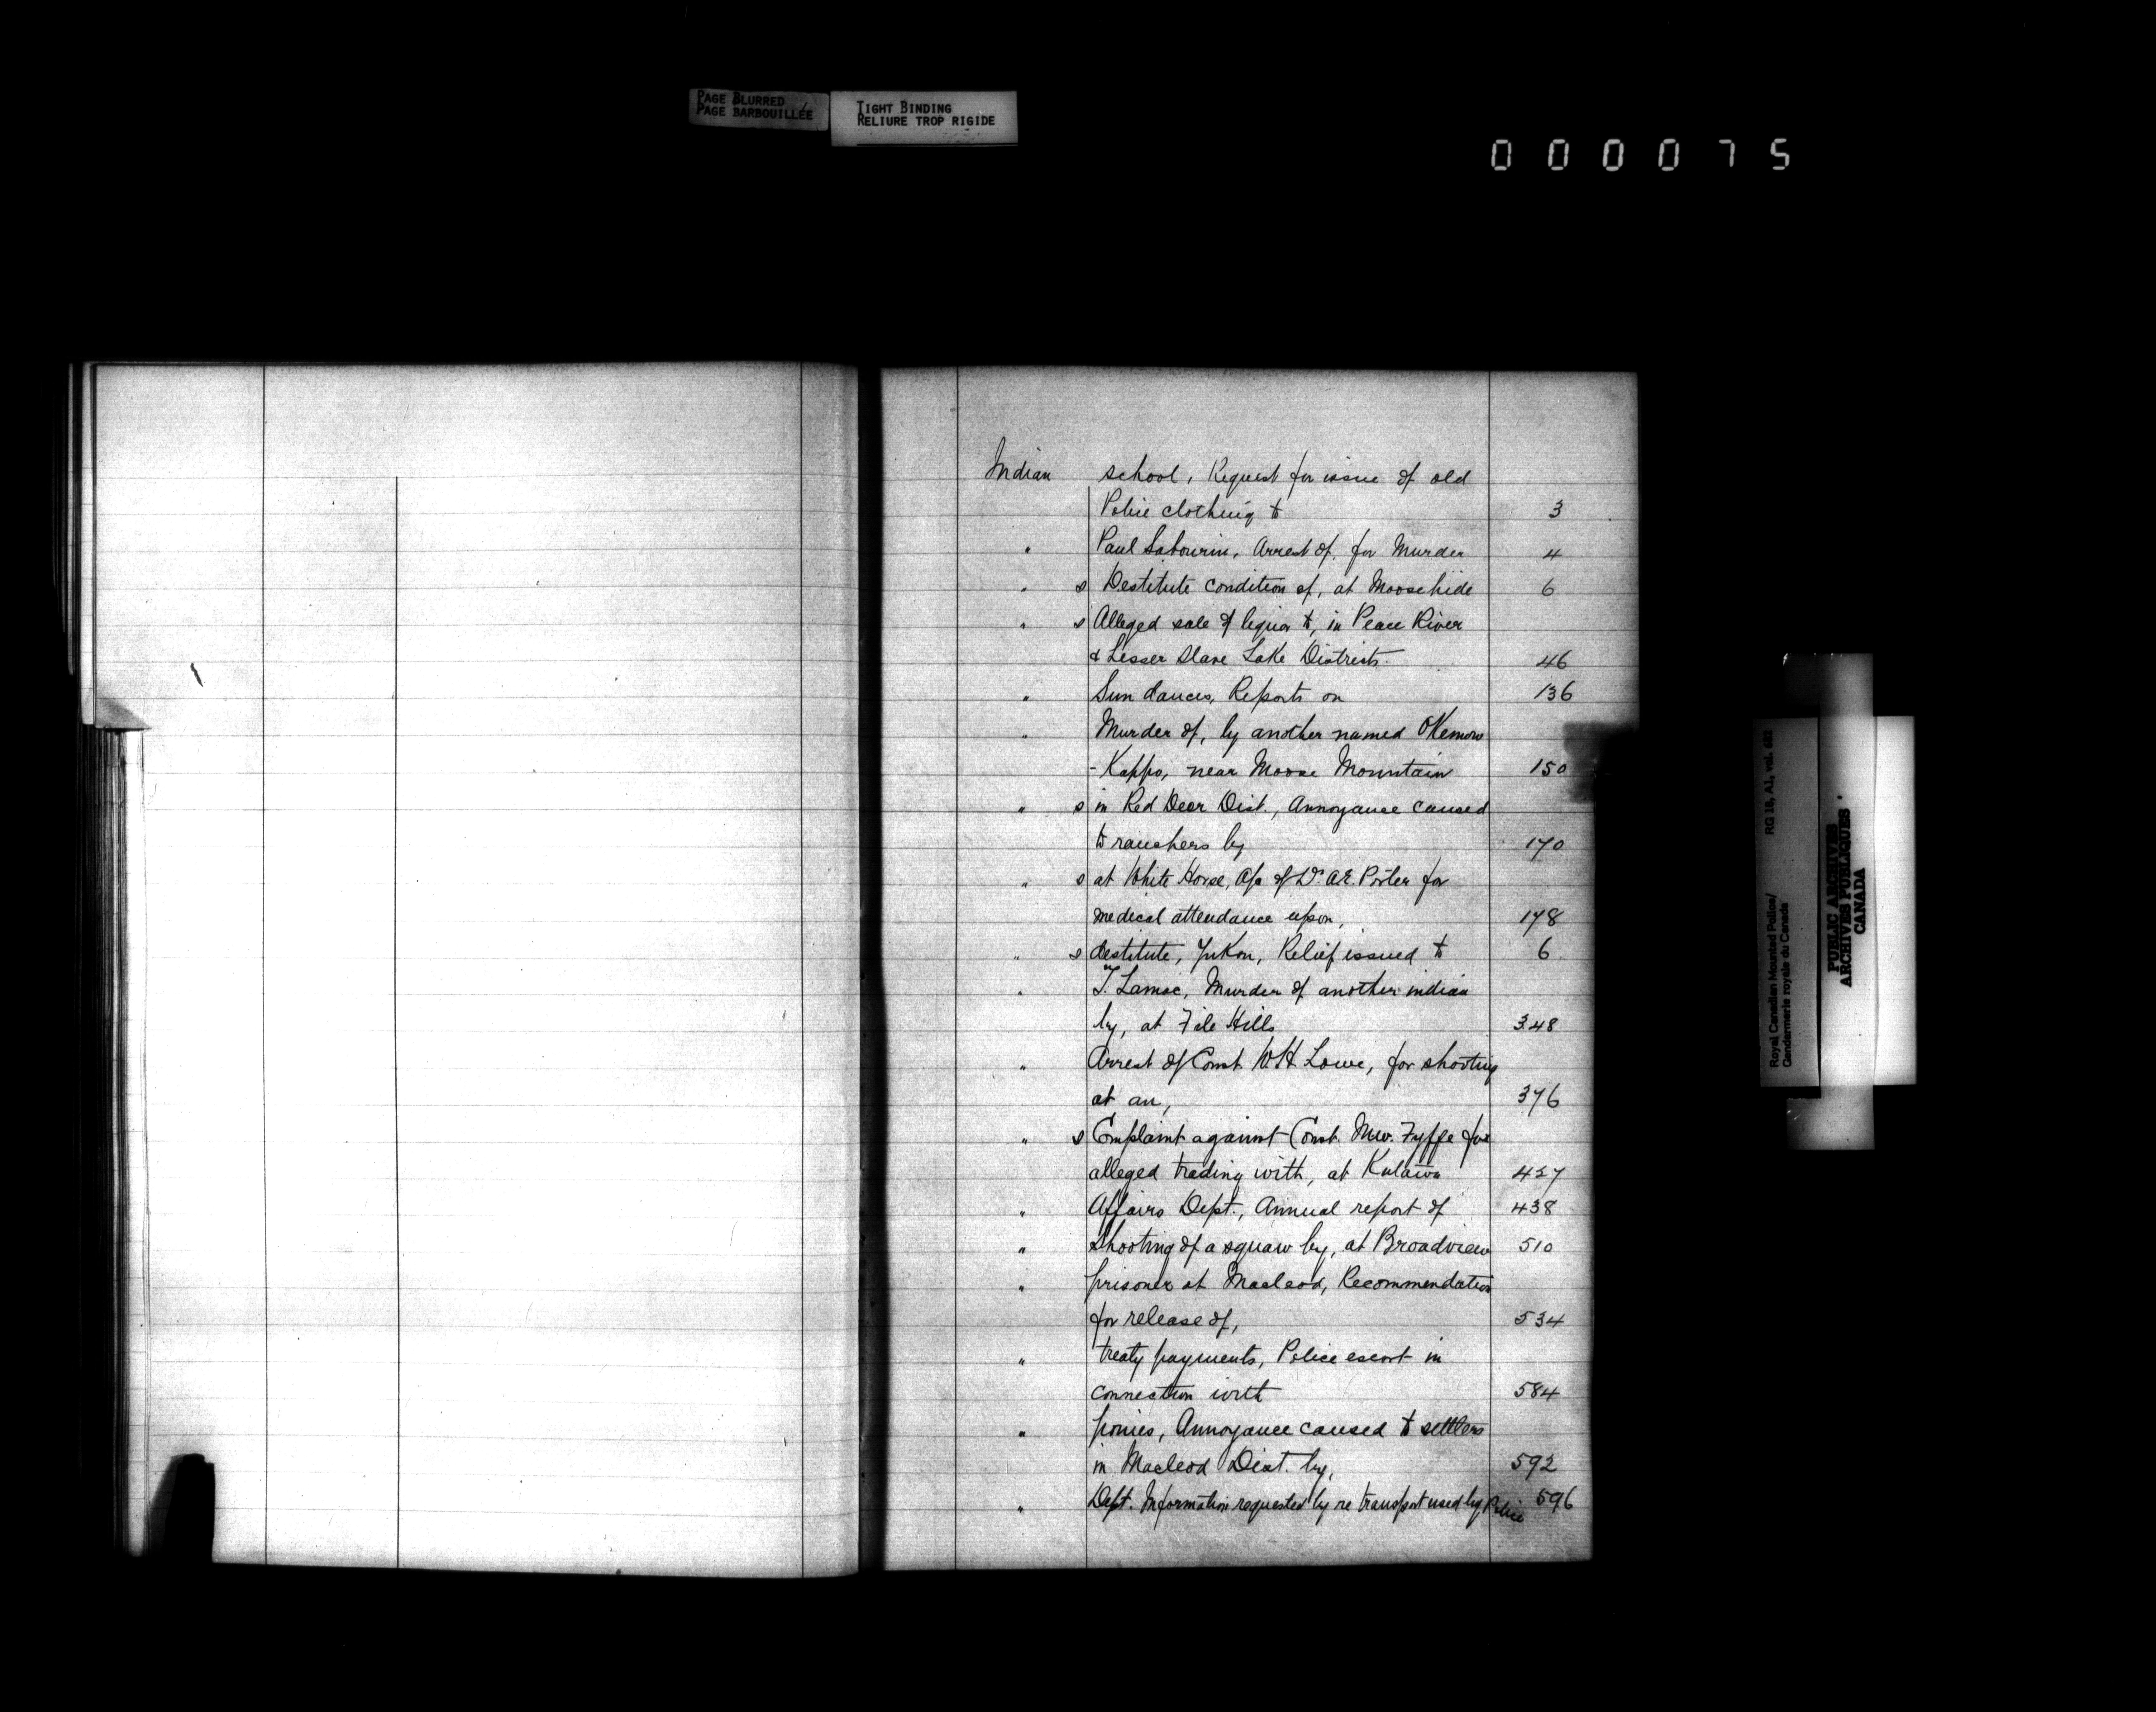 PAGE BLURRED
PAGE BARBOUILLÉE
TIGHT BINDING
RELIURE TROP RIGIDE
000075
Indian school, Request for issue of old
Police clothing to 3
" Paul Sabourin, Arrest of, for Murder 4
" s Destitute condition of, at Moosehide 6
" s Alleged sale of liquor to, in Peace River
& Lesser Slave Lake Districts. 46
" Sun dances, Reports on 136
" Murder of, by another named OKemow
-Kappo, near Moose Mountain 150
" s in Red Deer Dist., Annoyance caused
to ranchers by 170
" s at White Horse, A/c of Dr. A.E. Porter for
medical attendance upon, 178
" s destitute, Yukon, Relief issued to 6
" T. Lamac, Murder of another indian
by, at File Hills 348
" Arrest of Const. W H Lowe, for shooting
at an, 376
" s Complaint against Const. Fyffe for
alleged trading with, at 427
" Affairs Dept., Annual report of 438
" Shooting of a squaw by, at Broadview 510
" prisoner at Macleod, Recommendation
for release of, 534
" treaty payments, Police escort in
connection with 584
" ponies, Annoyance caused to settlers
in Macleod Dist. by, 592
" Dept. Information requested by re transport used by Police 596
Royal Canadian Mounted Police/ RG 18, A1, vol. 482
Gendarmerie royale du Canada
PUBLIC ARCHIVES
ARCHIVES PUBLIQUES
CANADA